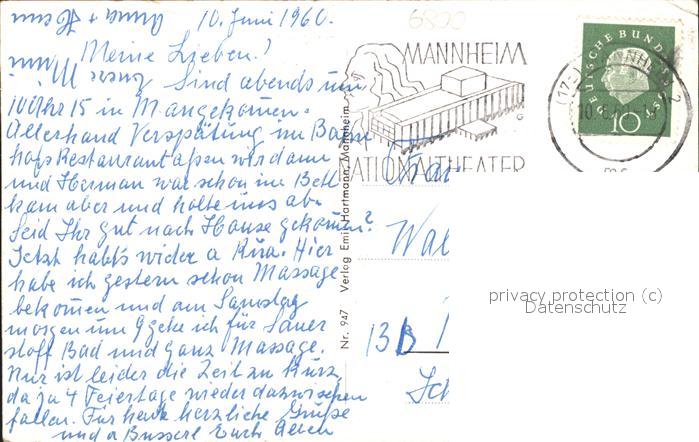 10. Juni 1960.
Meine Lieben!
Sind abends um
10 Uhr 15 in M angekommen.
Allerhand Verspätung im Bahn
hofs Restaurant aßen wir dann
und Herman war schon im Bett
kam aber und holte uns ab.
Seid Ihr gut nach Hause gekommen?
Jetzt habt's wider a Rua. Hier
habe ich gestern schon Massage
bekommen und am Samstag
morgen um 9 gehe ich für Sauer
stoff Bad und ganz Massage.
Nur ist leider die Zeit zu kurz,
da ja 4 Feiertage wieder dazwischen
fallen. Für heute herzliche Grüße
und a Busserl Euch Allen
Anna + Hermann
6800
MANNHEIM
NATIONALTHEATER
DEUTSCHE BUND
10
Nr. 947 Verlag Emil Hartmann, Mannheim
13B
privacy protection (c)
Datenschutz